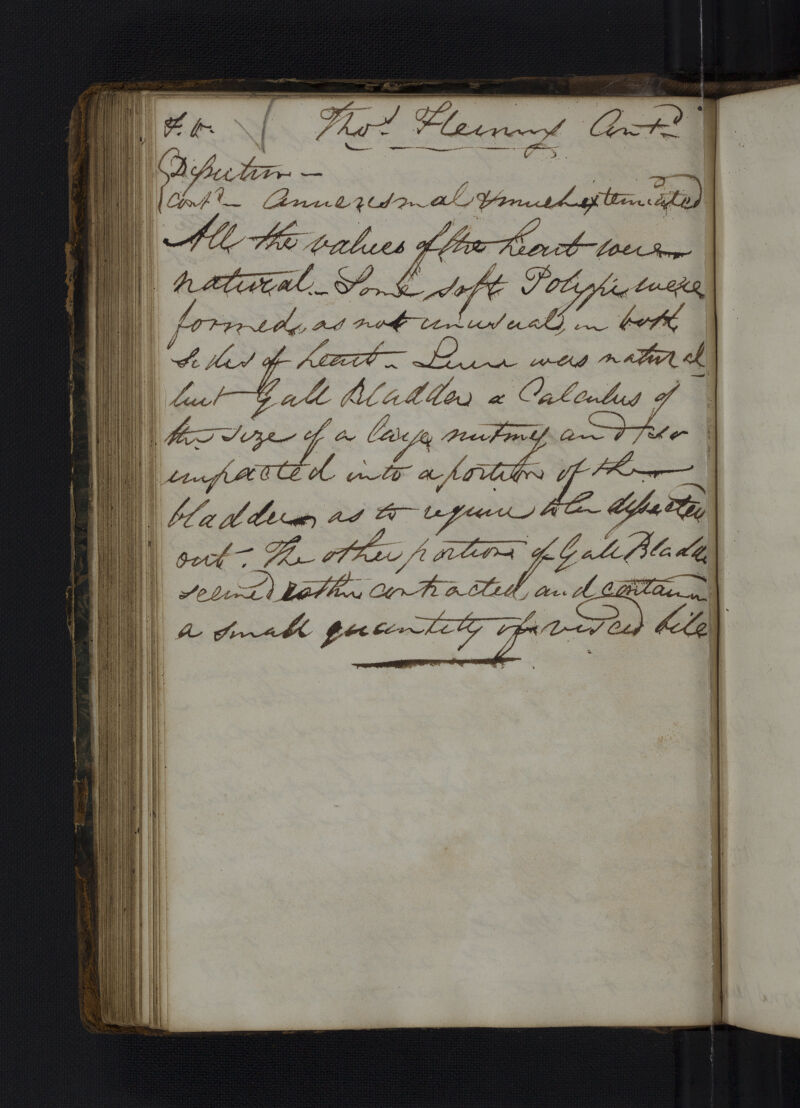 Thos. Fleming Contd
Dissection —
Contd — Anneurismal & much extenuated
All the valves of the heart were
natural. – Some soft Polypi were
formed, as not unusual, in both
sides of heart – Liver was natural
but Gall Bladder a Calculus of
the size of a large nutmeg and so
impacted into a portion of the
bladder, as to require to be dissected
out. The other portion of Gall Bladder
seemed rather contracted, and contain
a small quantity of viscid bile